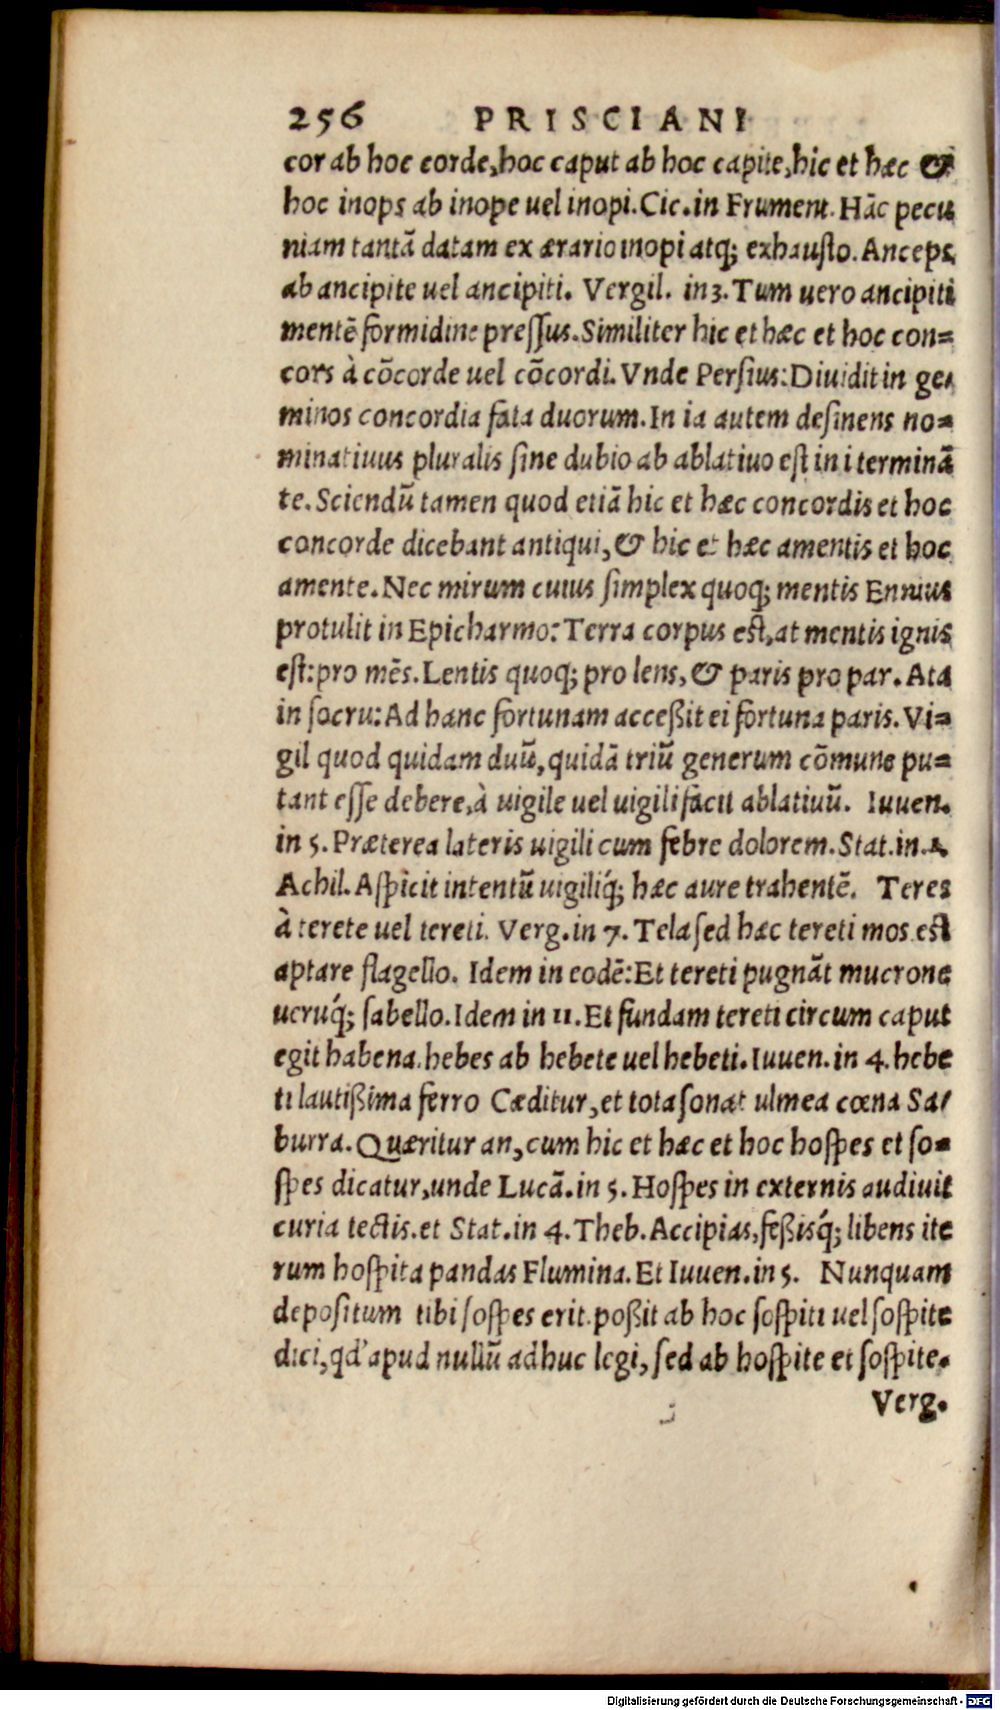 256 PRISCIANI
cor ab hoc corde, hoc caput ab hoc capite, hic et hæc &
hoc inops ab inope uel inopi. Cic. in Frument. Hãc pecu
niam tantã datam ex ærario inopi atq; exhausto. Anceps
ab ancipite uel ancipiti. Vergil. in 3. Tum uero ancipiti
mentẽ formidine pressus. Similiter hic et hæc et hoc con=
cors à cõcorde uel cõcordi. Vnde Persius: Diuidit in ge,
minos concordia fata duorum. In ia autem desinens no=
minatiuus pluralis sine dubio ab ablatiuo est in i terminã
te. Sciendũ tamen quod etiã hic et hæc concordis et hoc
concorde dicebant antiqui, & hic et hæc amentis et hoc
amente. Nec mirum cuius simplex quoq; mentis Ennius
protulit in Epicharmo: Terra corpus est, at mentis ignis
est: pro mẽs. Lentis quoq; pro lens, & paris pro par. Ata
in socru: Ad hanc fortunam acceßit ei fortuna paris. Vi=
gil quod quidam duũ, quidã triũ generum cõmune pu=
tant esse debere, à uigile uel uigili facit ablatiuũ. Iuuen.
in 5. Præterea lateris uigili cum febre dolorem. Stat. in 1.
Achil. Aspicit intentũ uigiliq́; hæc aure trahentẽ. Teres
à terete uel tereti. Verg. in 7. Tela sed hæc tereti mos est
aptare flagello. Idem in eodẽ: Et tereti pugnãt mucrone
ueruq́; sabello. Idem in 11. Et fundam tereti circum caput
egit habena. hebes ab hebete uel hebeti. Iuuen. in 4. hebe
ti lautißima ferro Cæditur, et tota sonat ulmea cœna Sa/
burra. Quæritur an, cum hic et hæc et hoc hospes et so=
spes dicatur, unde Lucã. in 5. Hospes in externis audiuit
curia tectis. et Stat. in 4. Theb. Accipias, feßisq́; libens ite
rum hospita pandas Flumina. Et Iuuen. in 5. Nunquam
depositum tibi sospes erit. poßit ab hoc sospiti uel sospite
dici, qd' apud nullũ adhuc legi, sed ab hospite et sospite.
Verg.
Digitalisierung gefördert durch die Deutsche Forschungsgemeinschaft - DFG